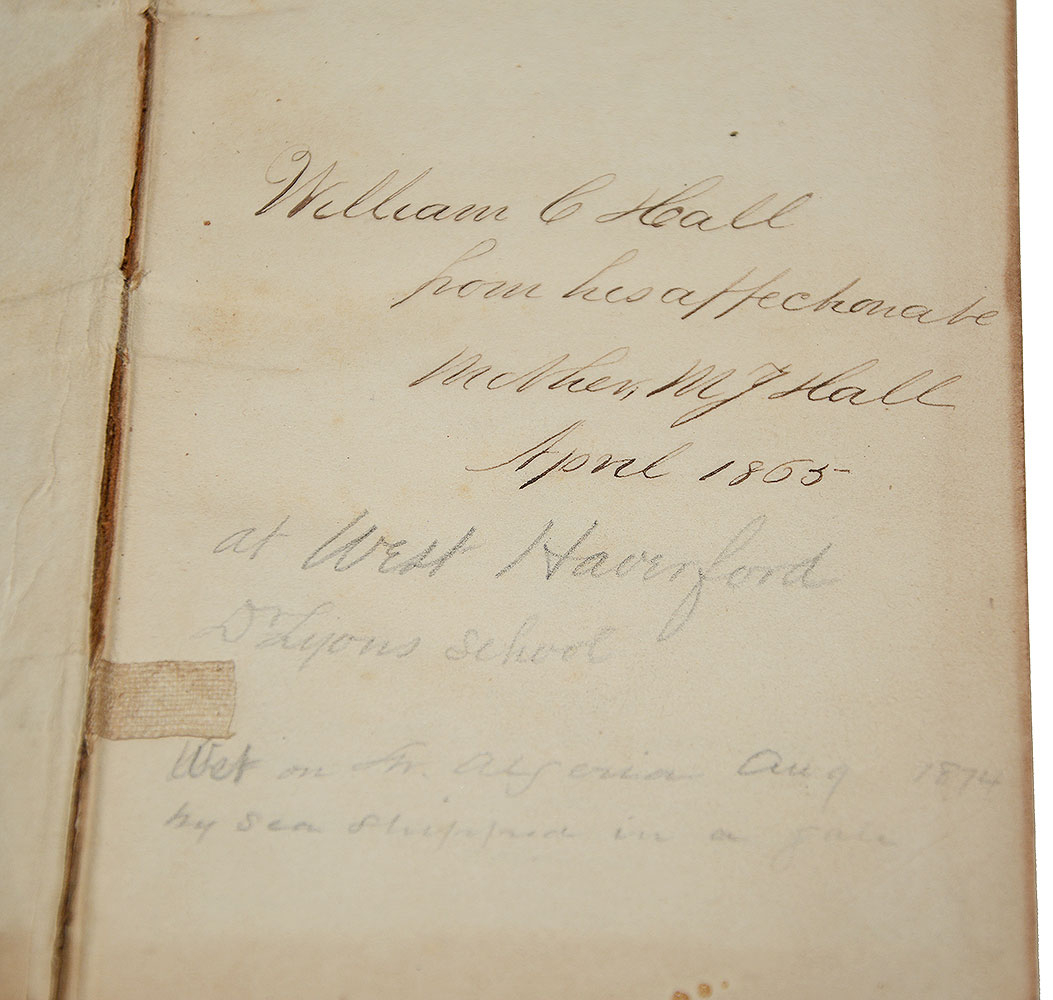 William C Hall
from his affectionate
Mother, M J Hall
April 1865
at West Haverford
Dr Lyons School
Wet on Sr. Algeria Aug 1874
by sea shipped in a gale